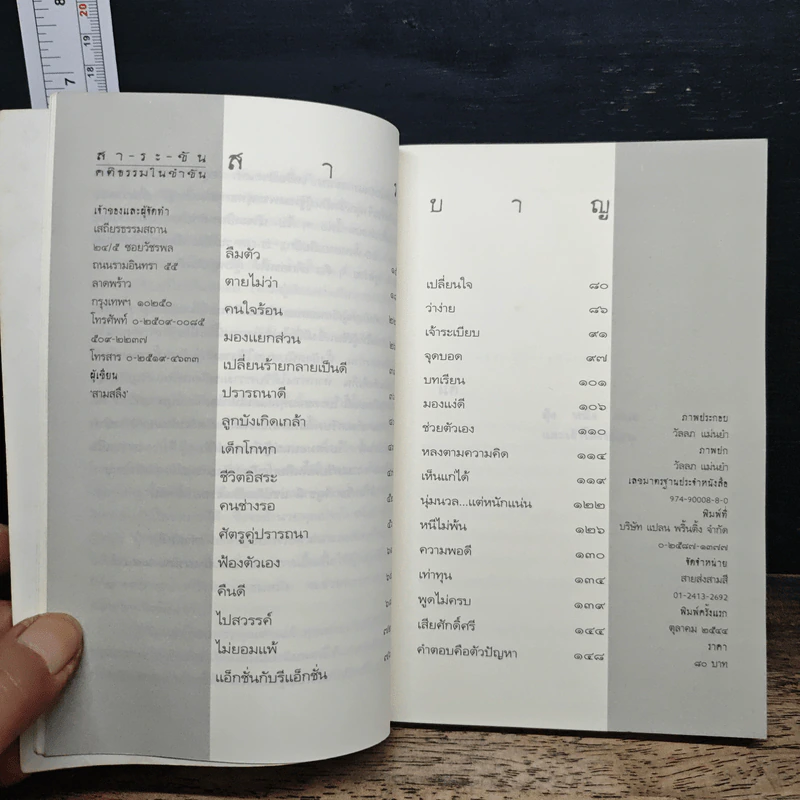 8
7
20
19
18
สา-ระ-ขัน
คติธรรมในขำขัน
เจ้าของและผู้จัดทำ
เสถียรธรรมสถาน
๒๔/๕ ซอยวัชรพล
ถนนรามอินทรา ๕๕
ลาดพร้าว
กรุงเทพฯ ๑๐๒๕๐
โทรศัพท์ ๐-๒๕๐๙-๐๐๘๕
๕๐๙-๒๒๓๗
โทรสาร ๐-๒๕๑๙-๔๖๓๓
ผู้เขียน
'สามสลึง'
ส า
ลืมตัว
ตายไม่ว่า
คนใจร้อน
มองแยกส่วน
เปลี่ยนร้ายกลายเป็นดี
ปรารถนาดี
ลูกบังเกิดเกล้า
เด็กโกหก
ชีวิตอิสระ
คนช่างรอ
ศัตรูคู่ปรารถนา
ฟ้องตัวเอง
คืนดี
ไปสวรรค์
ไม่ยอมแพ้
แอ็กชั่นกับรีแอ็กชั่น
บ า ญ
เปลี่ยนใจ ๘๐
ว่าง่าย ๘๖
เจ้าระเบียบ ๙๑
จุดบอด ๙๗
บทเรียน ๑๐๑
มองแง่ดี ๑๐๖
ช่วยตัวเอง ๑๑๐
หลงตามความคิด ๑๑๔
เห็นแก่ได้ ๑๑๙
นุ่มนวล...แต่หนักแน่น ๑๒๒
หนีไม่พ้น ๑๒๖
ความพอดี ๑๓๐
เท่าทุน ๑๓๔
พูดไม่ครบ ๑๓๙
เสียศักดิ์ศรี ๑๔๔
คำตอบคือตัวปัญหา ๑๔๘
ภาพประกอบ
วัลลภ แม่นยำ
ภาพปก
วัลลภ แม่นยำ
เลขมาตรฐานประจำหนังสือ
974-90008-8-0
พิมพ์ที่
บริษัท แปลน พริ้นติ้ง จำกัด
๐-๒๕๘๗-๑๓๗๗
จัดจำหน่าย
สายส่งสามสี
01-2413-2692
พิมพ์ครั้งแรก
ตุลาคม ๒๕๔๔
ราคา
๘๐ บาท